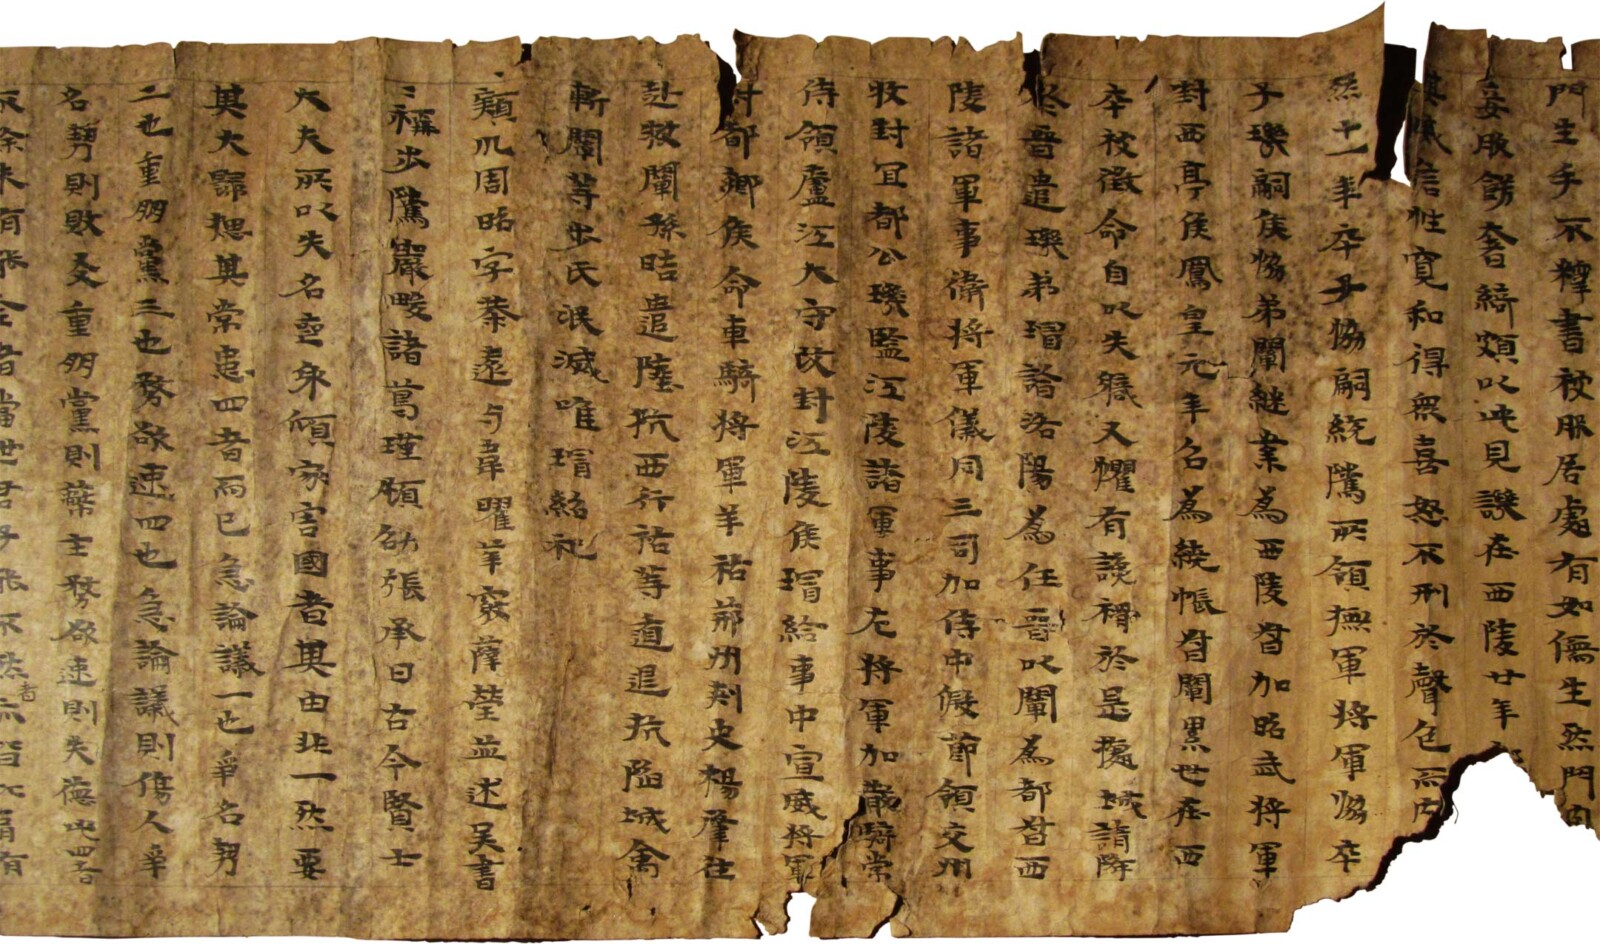 門生手不釋書被服居處有如儒生然門內
妾服飾奢綺頗以此見譏在西陵廿年
其威信性寬和得衆喜怒不形於聲色
然十一年卒子協嗣統騭所領撫軍將軍協卒
子璣嗣侯協弟闡繼業為西陵督加昭武將軍
封西亭侯鳳皇元年召為繞帳督闡累世在西
卒被徵命自以失職又懼有讒禍於是據城請降
於晉遣璣弟璿詣洛陽為任晉以闡為都督西
陵諸軍事衛將軍儀同三司加侍中假節領交州
牧封宜都公璣監江陵諸軍事左將軍加散騎常
侍領廬江大守改封江陵侯璿給事中宣威將軍
封都鄉侯命車騎將軍羊祜荊州刺史楊肇往
赴救闡孫晧遣陸抗西行祜等遁退抗陷城禽
斬闡等步氏泯滅唯璿紹祀
潁川周昭字恭遠与韋曜華覈薛瑩並述吳書
稱步騭嚴畯諸葛瑾顧劭張承曰古今賢士
大夫所以失名喪身傾家害國者其由非一然要
其大歸揔其常患四者而已急論議一也爭名勢
二也重朋黨三也務欲速四也急論議則傷人爭
名勢則敗友重朋黨則蔽主務欲速則失德此四者
不除未有能全者當世君子能不然者亦比有